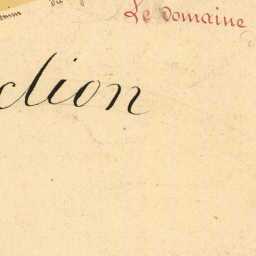 Le domaine
ction